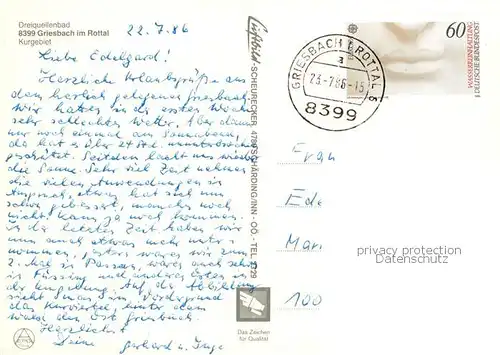 Dreiquellenbad
8399 Griesbach im Rottal
Kurgebiet
22.7.86
Liebe Edelgard!
Herzliche Urlaubsgrüße aus
dem herrlich gelegenen Griesbach.
Wir hatten in der ersten Woche
sehr schlechtes Wetter. Aber dann
nur noch einmal am Sonnabend,
da hat es über 24 Std. ununterbrochen
geschüttet. Seitdem lacht uns wieder
die Sonne. Sehr viel Zeit nehmen
die vielen Anwendungen in
Anspruch, etwas hat sich uns
schon gebessert, manches noch
nicht, kann ja noch kommen.
In der letzten Zeit haben wir
nun auch etwas mehr unter-
nommen, waren wir zum
2. mal in Passau, waren auch schon
in Füssing und anderen Orten in
der Umgebung. Auf der Abbildung
sieht man im Vordergrund
das Kurviertel, hinter dem
Wald den Ort Griesbach.
Herzlichst
Deine Gerhard u. Inge
Luftbild-SCHEURECKER, 4780 SCHÄRDING/INN - OÖ - TEL.
Das Zeichen
für Qualität
60
DEUTSCHE BUNDESPOST
GRIESBACH I ROTTAL 5
a
23.-7.86-15
8399
Frau
Ede
Mari
100
privacy protection
Datenschutz